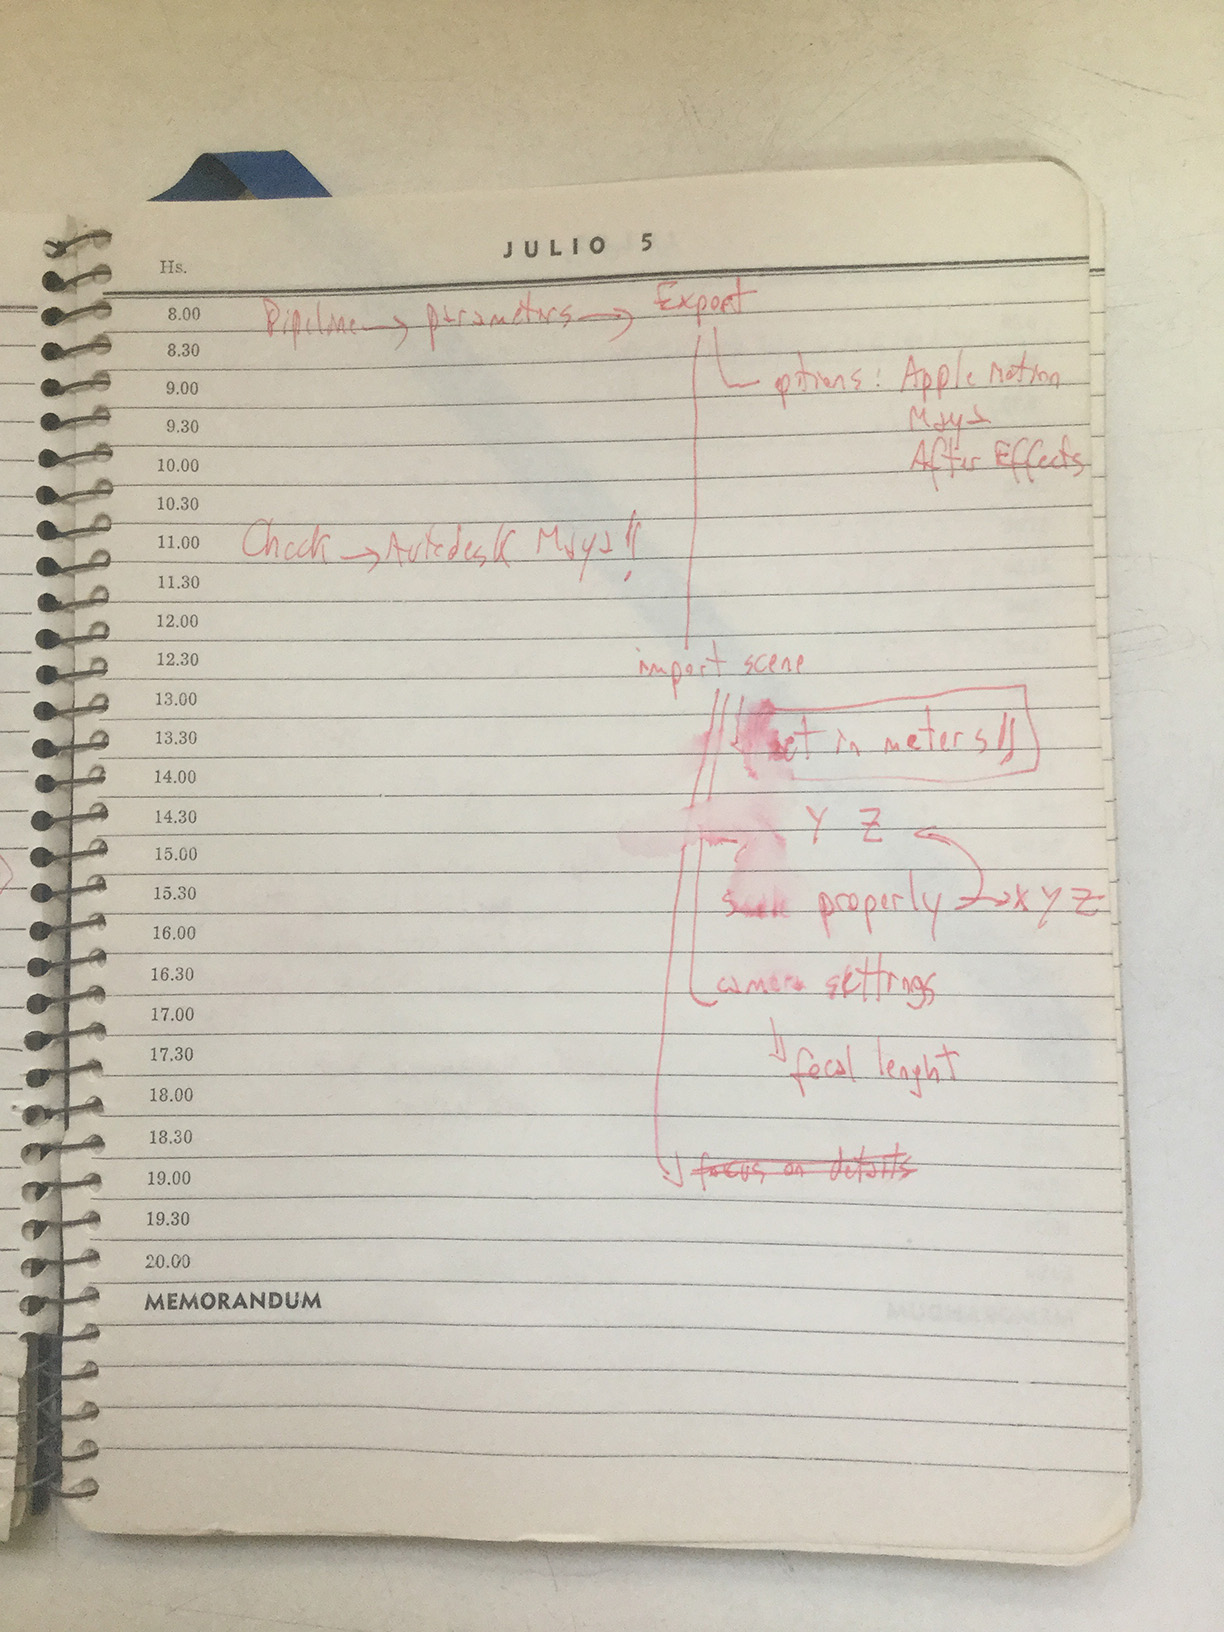 JULIO 5
Hs.
8.00 Pipeline → parameters → Export
8.30
9.00 options: Apple Motion
9.30 Maya
10.00 After Effects
10.30
11.00 Check → Autodesk Maya!!
11.30
12.00
12.30 import scene
13.00
13.30 set in meters!!
14.00
14.30 Y Z
15.00
15.30 properly → X Y Z
16.00
16.30 camera settings
17.00
17.30 focal lenght
18.00
18.30
19.00 focus on details
19.30
20.00
MEMORANDUM